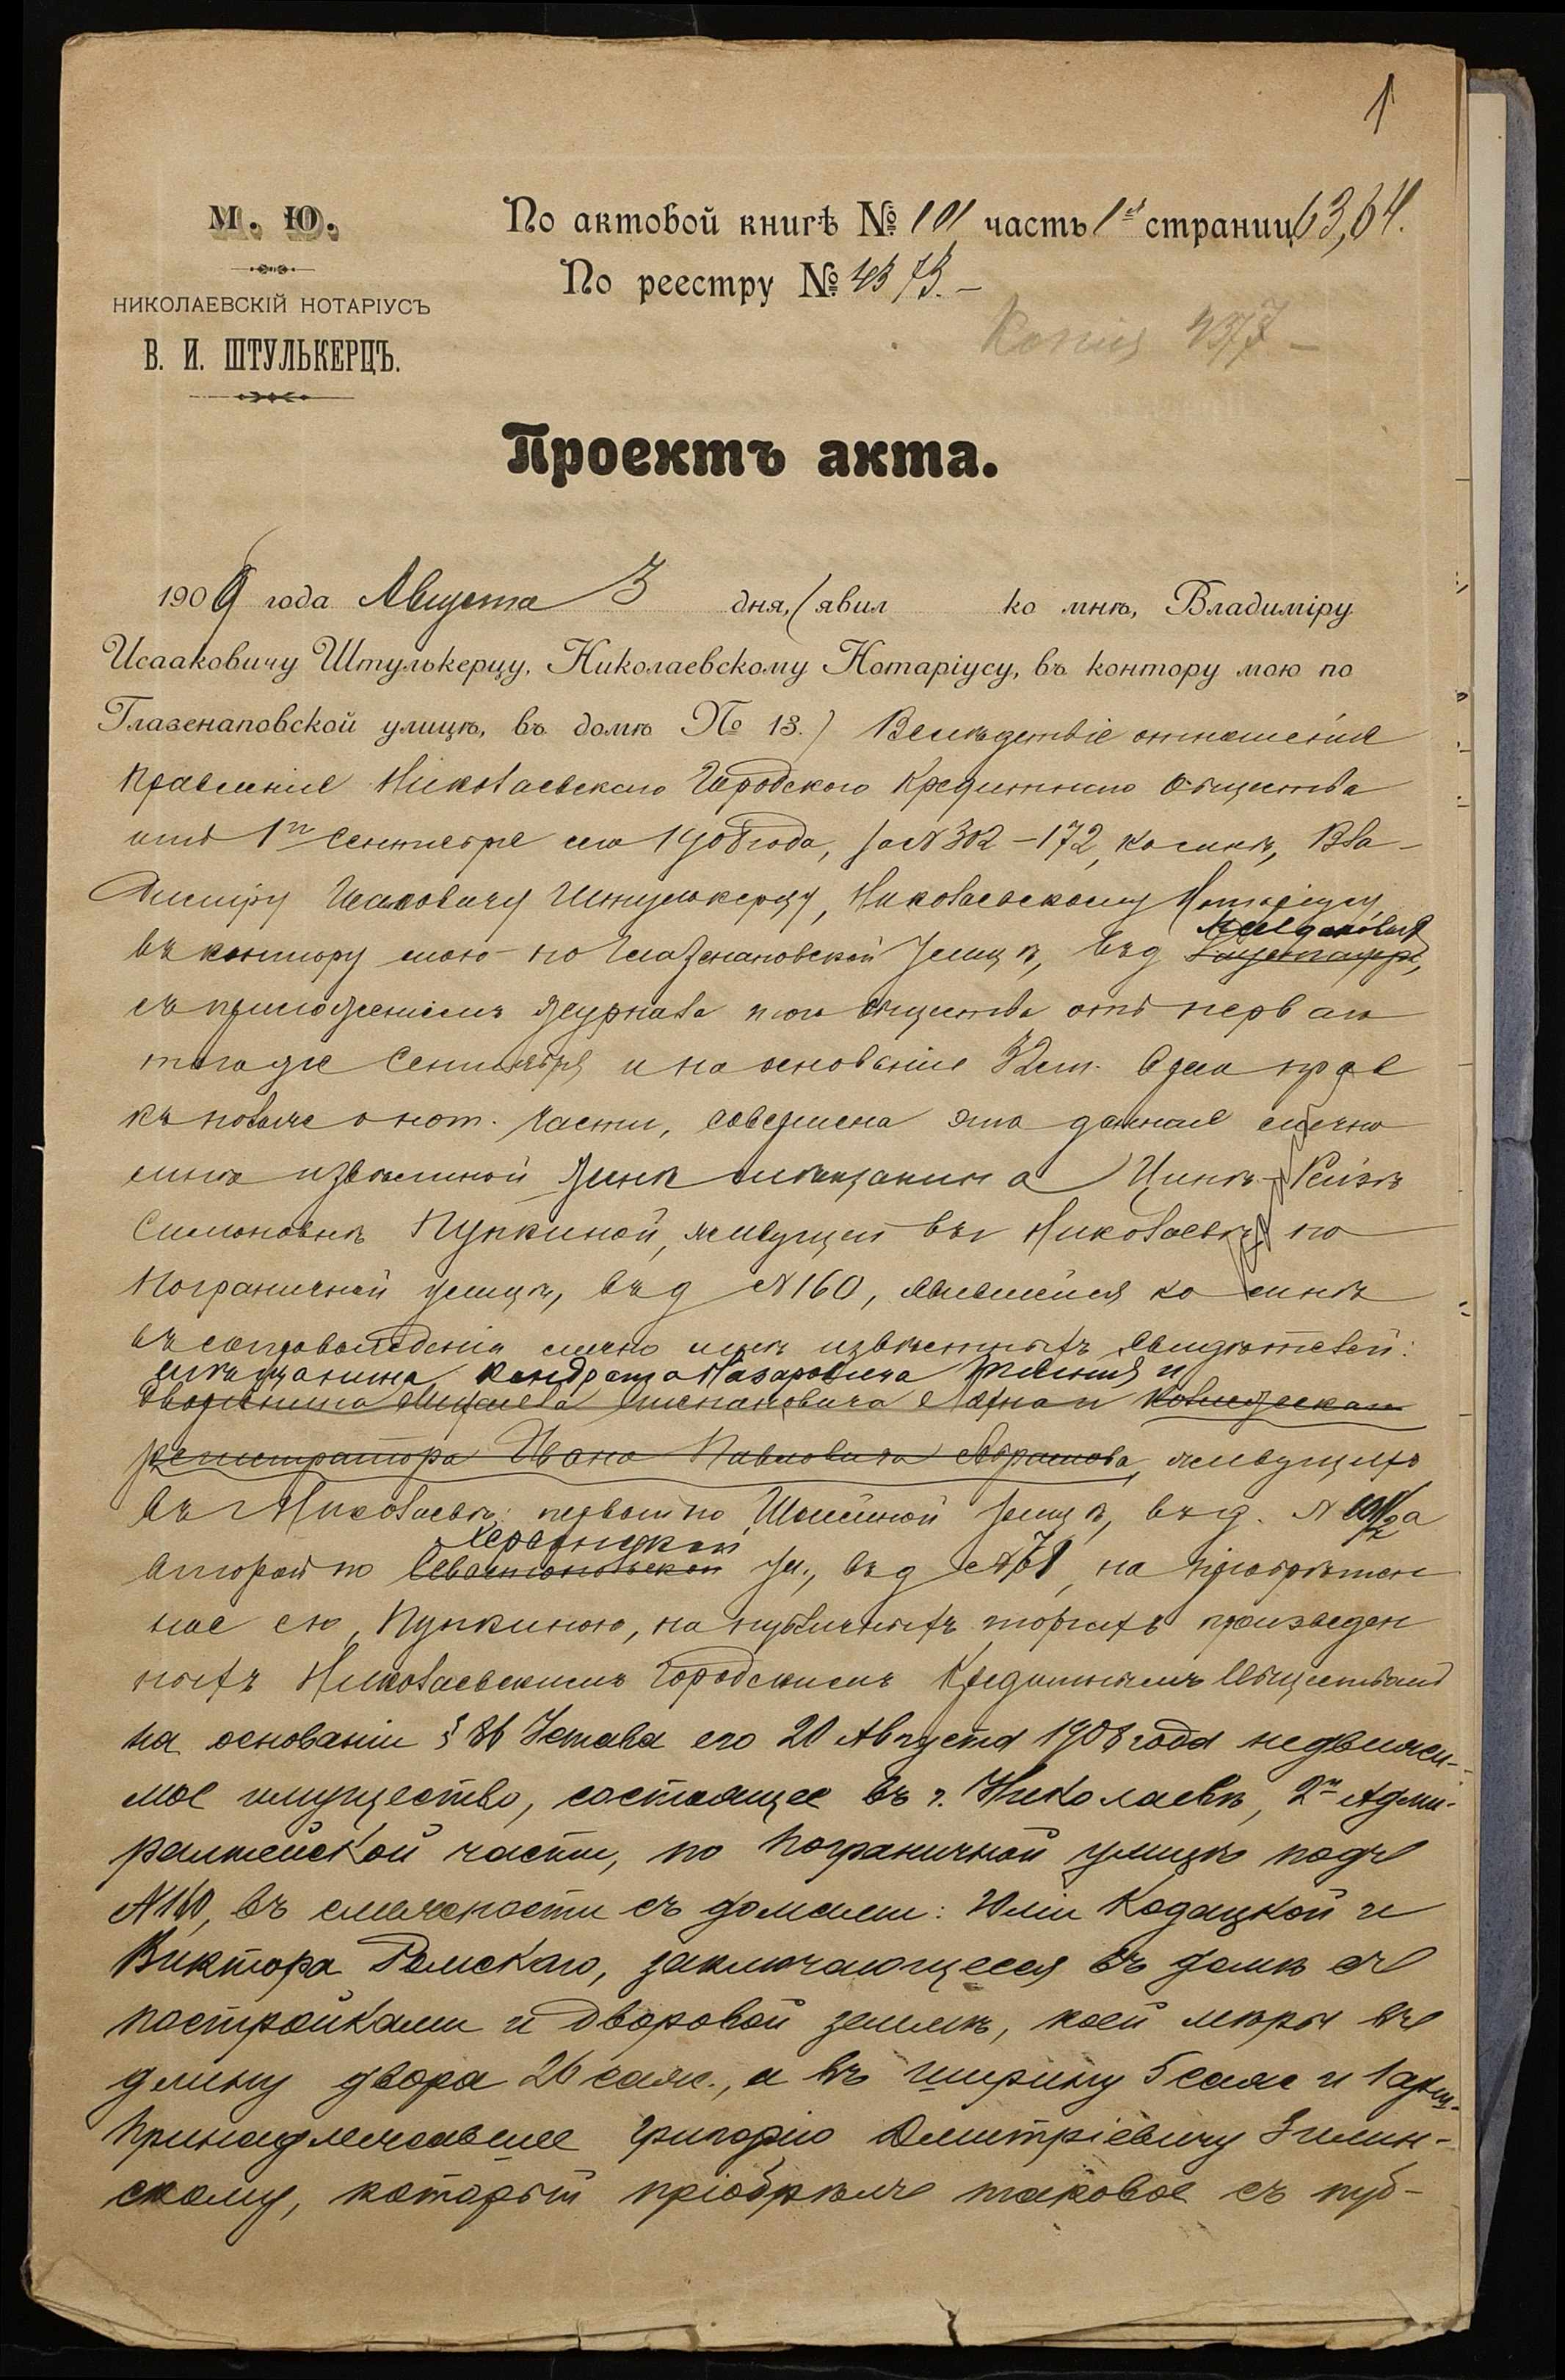 1
М. Ю.
НИКОЛАЕВСКІЙ НОТАРІУСЪ
В. И. ШТУЛЬКЕРЦЪ.
По актовой книгѣ № 101 часть 1я страниц 63,64.
По реестру №
Копія
Проектъ акта.
1909 года Августа 3 дня, (явил ко мнѣ, Владиміру
Исааковичу Штулькерцу, Николаевскому Нотаріусу, въ контору мою по
Глазенаповской улицѣ, въ домѣ № 13.) Вслѣдствіе отношенія
Правленія Николаевскаго Городского Кредитнаго Общества
отъ 1го Сентября сего 1908 года, за N 302-172, ко мнѣ, Вла-
диміру Исаковичу Штулькерцу, Николаевскому Нотаріусу
въ контору мою по Глазенаповской улицѣ, въ д
съ приложеніемъ журнала того Общества отъ перваго
того же Сентября и на основаніи 32 ст.
къ полож о нот. части, совершена эта данная лично
мнѣ извѣстной женѣ мѣщанина Ципѣ-Рейзѣ
Симоновнѣ Пупкиной, живущей въ г Николаевѣ по
Пограничной улицѣ, въ д N 160, явившейся ко мнѣ
въ сопровожденіи лично мнѣ извѣстныхъ свидѣтелей:
мѣщанина Кондрата Назаровича и
дворянина Михаила Степановича и коллежскаго
регистратора Ивана Павловича Абрамова, живущихъ
въ г Николаевѣ: первый по улицѣ, въ д. N
Херсонской
второй по Севастопольской ул., въ д N 71, на пріобрѣтен
ное ею, Пупкиною, на публичныхъ торгахъ произведен
ныхъ Николаевскимъ Городскимъ Кредитнымъ Обществомъ
на основаніи § 86 Устава его 20 Августа 1908 года недвижи-
мое имущество, состоящее въ г. Николаевѣ, 2й Адми-
ралтейской части, по Пограничной улицѣ подъ
N 160, въ смежности съ домами: Юліи Кодацкой и
Виктора Рымскаго, заключающееся въ домѣ съ
постройками и дворовой землѣ, коей мѣры въ
длину двора 26 саж., а въ ширину 5 саж и 1 арш.
принадлежавшее Григорію Дмитріевичу Зилин-
скому, который пріобрѣлъ таковое съ пуб-